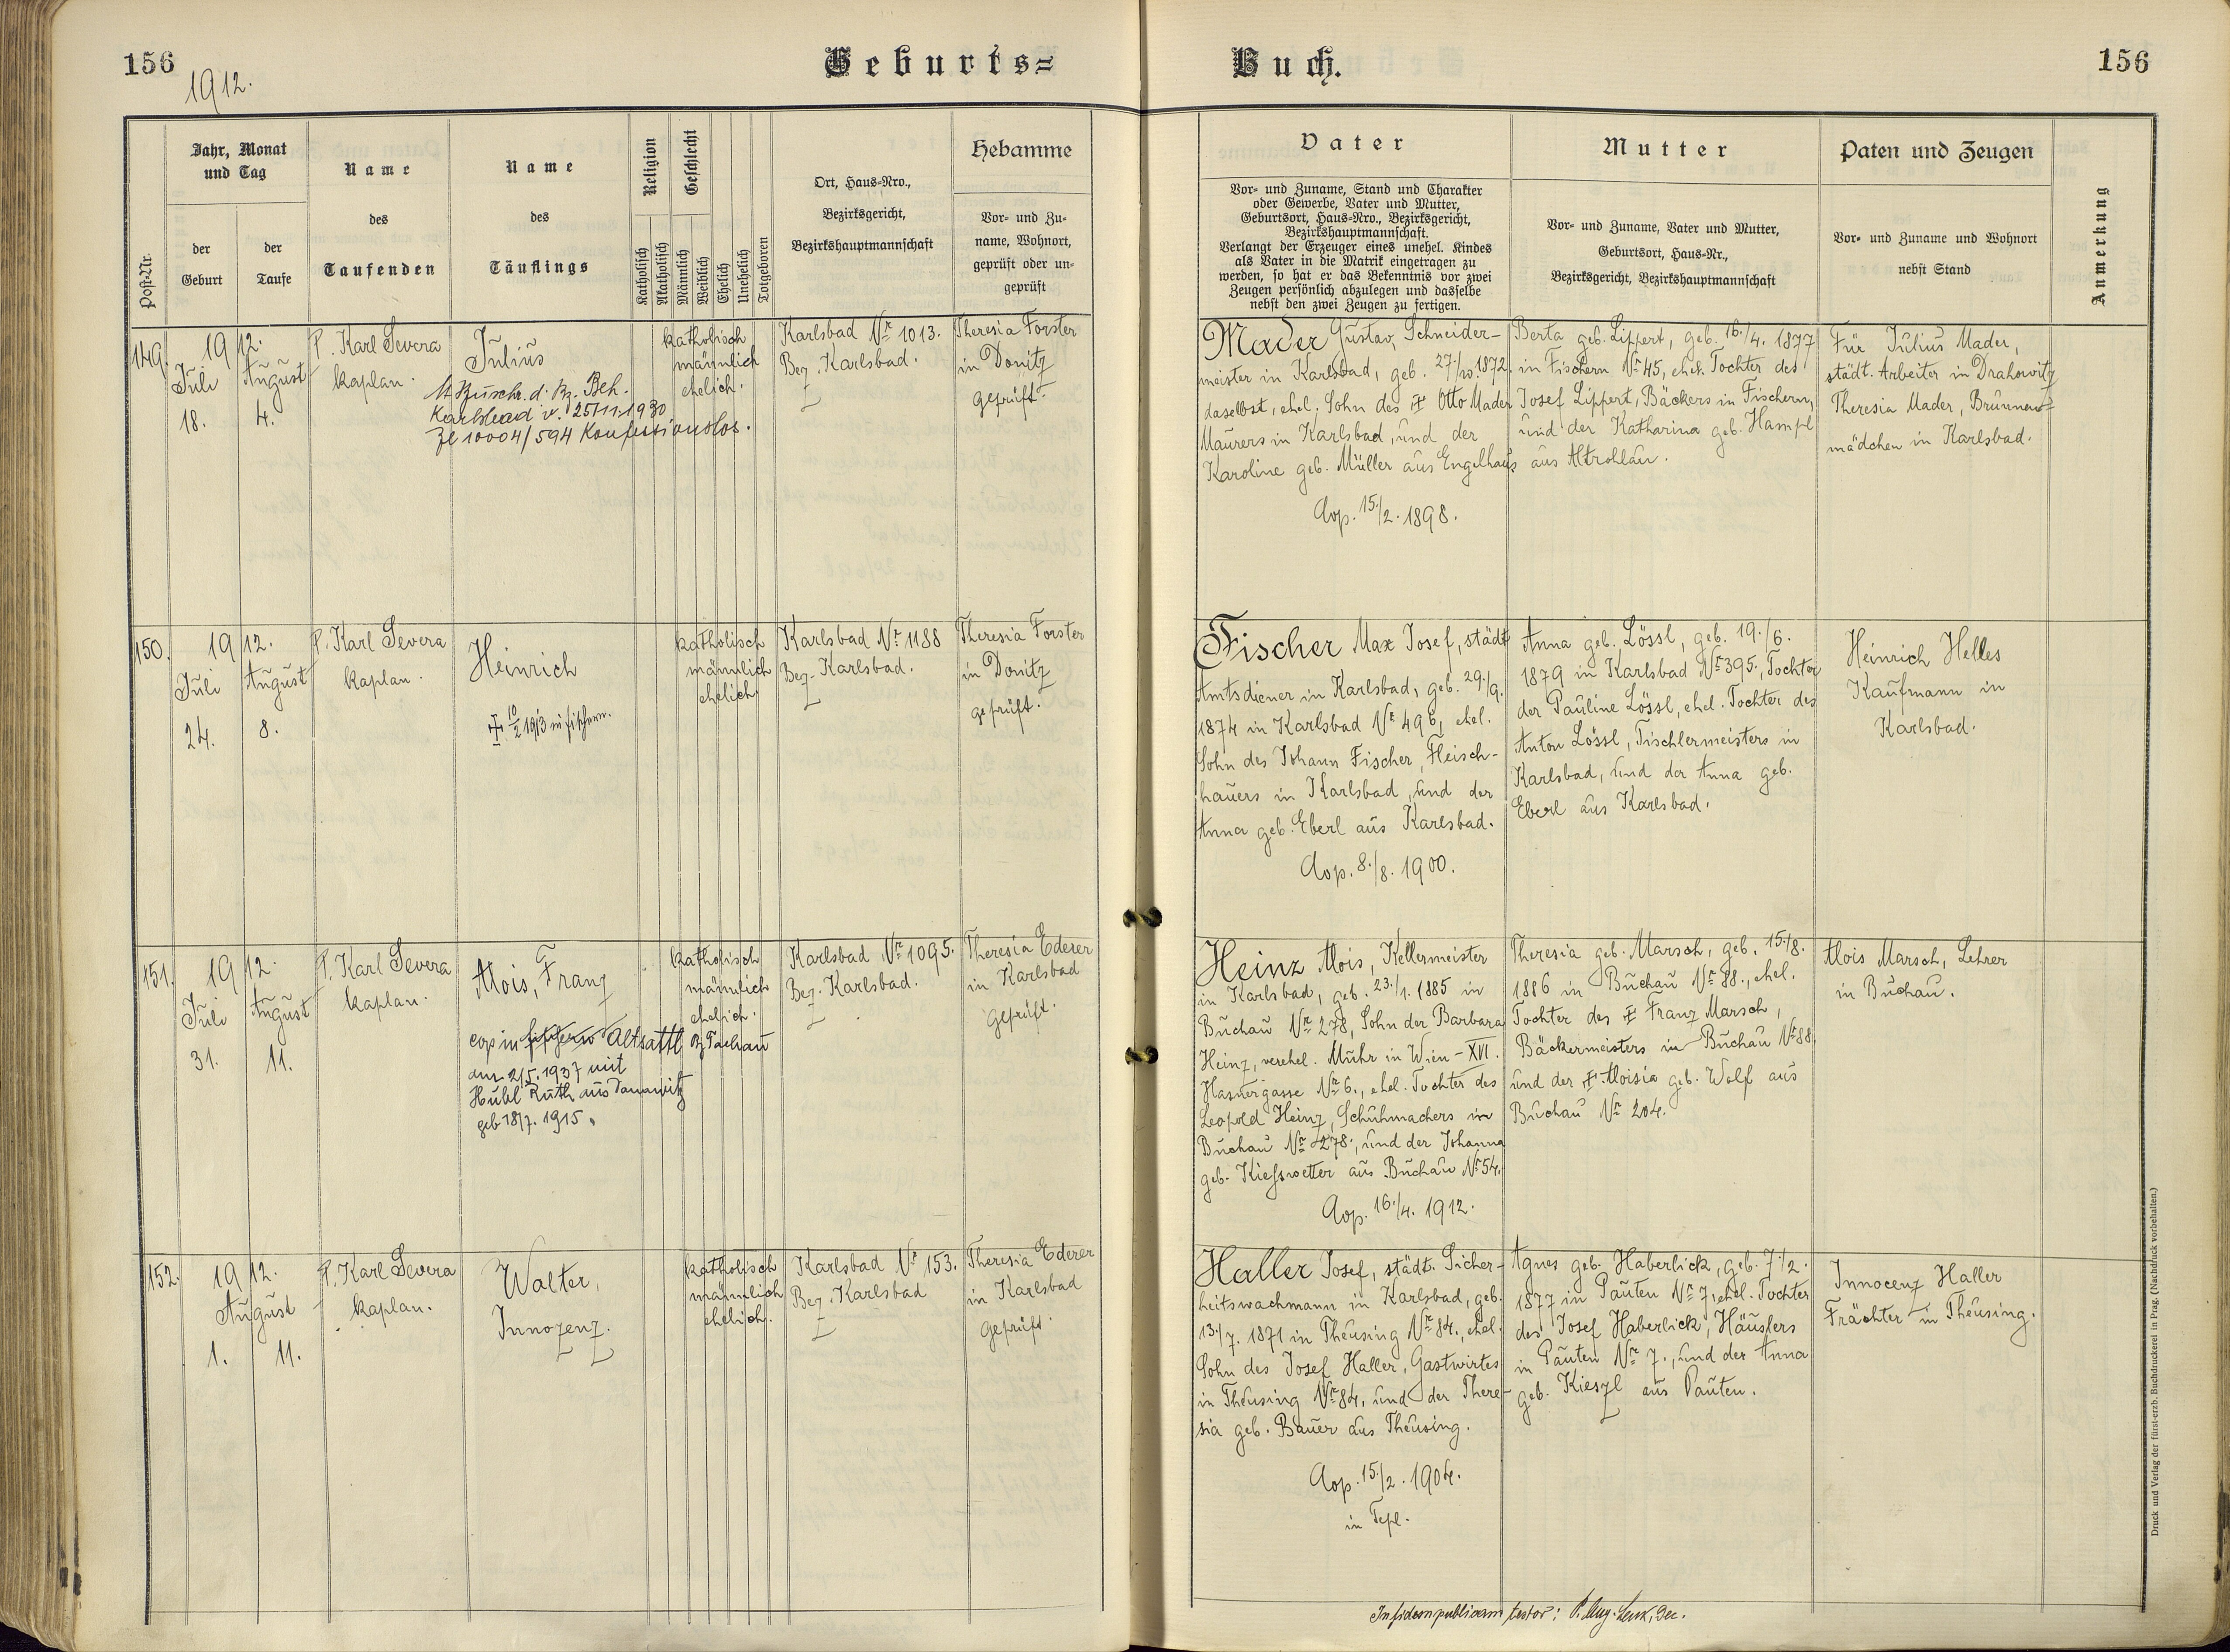 156
1912.
Geburts=
Buch.
156
Post-Nr.
Jahr, Monat
und Tag
der
Geburt
der
Taufe
Name
des
Taufenden
Name
des
Täuflings
Religion
Katholisch
Akatholisch
Geschlecht
Männlich
Weiblich
Ehelich
Unehelich
Totgeboren
Ort, Haus-Nro.,
Bezirksgericht,
Bezirkshauptmannschaft
Hebamme
Vor- und Zu-
name, Wohnort,
geprüft oder un-
geprüft
Vater
Vor- und Zuname, Stand und Charakter
oder Gewerbe, Vater und Mutter,
Geburtsort, Haus-Nro., Bezirksgericht,
Bezirkshauptmannschaft.
Verlangt der Erzeuger eines unehel. Kindes
als Vater in die Matrik eingetragen zu
werden, so hat er das Bekenntnis vor zwei
Zeugen persönlich abzulegen und dasselbe
nebst den zwei Zeugen zu fertigen.
Mutter
Vor- und Zuname, Vater und Mutter,
Geburtsort, Haus-Nr.,
Bezirksgericht, Bezirkshauptmannschaft
Paten und Zeugen
Vor- und Zuname und Wohnort
nebst Stand
Anmerkung
149.
1912.
Juli
18.
August
4.
P. Karl Severa
kaplan.
Julius
lt Zuschr. d. Bz. Beh.
Karlsbad v. 25/11.1930
Zl 10004/594 Konfessionslos.
katholisch
männlich
ehelich.
Karlsbad Nr 1013.
Bez. Karlsbad.
Theresia Forster
in Donitz
geprüft.
Mader Gustav, Schneider-
meister in Karlsbad, geb. 27./10. 1872.
daselbst, ehel. Sohn des ‡ Otto Mader
Maurers in Karlsbad, und der
Karoline geb. Müller aus Engelhaus
Cop. 15./2. 1898.
Berta geb. Lippert, geb. 16./4. 1877
in Fischern Nr 45, ehel. Tochter des
Josef Lippert, Bäckers in Fischern,
und der Katharina geb. Hampl
aus Altrohlau.
Für Julius Mader,
städt. Arbeiter in Drahowitz
Theresia Mader, Brunnen=
mädchen in Karlsbad.
150.
1912.
Juli
24.
August
8.
P. Karl Severa
kaplan.
Heinrich
‡ 10/2 1913 in Fischern.
katholisch
männlich
ehelich
Karlsbad Nr 1188
Bez. Karlsbad.
Theresia Forster
in Donitz
geprüft.
Fischer Max Josef, städt
Amtsdiener in Karlsbad, geb. 29./9.
1874 in Karlsbad Nr 496, ehel.
Sohn des Johann Fischer, Fleisch-
hauers in Karlsbad, und der
Anna geb. Eberl aus Karlsbad.
Cop. 8./8. 1900.
Anna geb. Lössl, geb. 19./6.
1879 in Karlsbad Nr 395, Tochter
der Pauline Lössl, ehel. Tochter des
Anton Lössl, Tischlermeisters in
Karlsbad, und der Anna geb.
Eberl aus Karlsbad.
Heinrich Helles
Kaufmann in
Karlsbad.
151.
1912.
Juli
31.
August
11.
P. Karl Severa
kaplan.
Alois, Franz
cop in Altsattl Bz Tachau
am 2/5. 1937 mit
Hübl Ruth aus
geb 18/7. 1915.
katholisch
männlich
ehelich.
Karlsbad Nr 1095.
Bez. Karlsbad.
Theresia Ederer
in Karlsbad
geprüft.
Heinz Alois, Kellermeister
in Karlsbad, geb. 23./1. 1885 in
Buchau Nr 278, Sohn der Barbara
Heinz, verehel. Muhr in Wien - XVI.
Hasnergasse Nr 6., ehel. Tochter des
Leopold Heinz, Schuhmachers in
Buchau Nr 278., und der Johanna
geb. Kiesswetter aus Buchau Nr 54.
Cop. 16./4. 1912.
Theresia geb. Marsch, geb. 15./8.
1886 in Buchau Nr 88., ehel.
Tochter des ‡ Franz Marsch,
Bäckermeisters in Buchau Nr 88.
und der ‡ Aloisia geb. Wolf aus
Buchau Nr 204.
Alois Marsch, Lehrer
in Buchau.
152.
1912.
August
1. 11.
P. Karl Severa
kaplan.
Walter,
Innozenz.
katholisch
männlich
ehelich.
Karlsbad Nr 153.
Bez. Karlsbad
Theresia Ederer
in Karlsbad
geprüft.
Haller Josef, städt. Sicher-
heitswachmann in Karlsbad, geb.
13./7. 1871 in Theusing Nr 84., ehel.
Sohn des Josef Haller, Gastwirtes
in Theusing Nr 84, und der There-
sia geb. Bauer aus Theusing.
Cop. 15./2. 1904.
in Tepl.
Agnes geb. Haberlick, geb. 7./2.
1877 in Pauten Nr 7, ehel. Tochter
des Josef Haberlick, Häuslers
in Pauten Nr 7., und der Anna
geb. Kieszl aus Pauten.
Innocenz Haller
Frächter in Theusing.
In fidem publicam testor: P. Aug. Lenk, Dec.
Druck und Verlag der fürst-erzb. Buchdruckerei in Prag. (Nachdruck vorbehalten.)